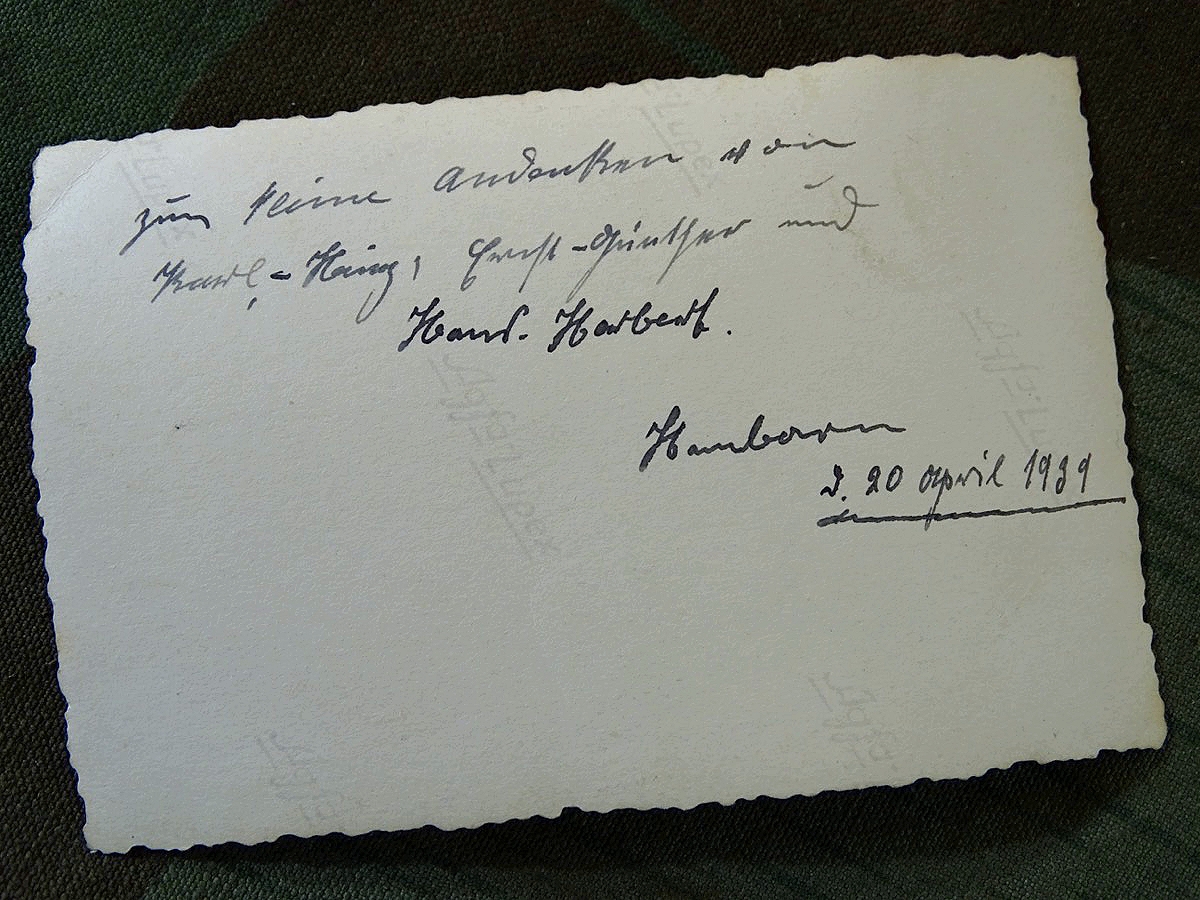 zum kleine Andenken von
Karl-Heinz, Ernst-Günther und
Hans-Herbert.
Hamborn
d. 20 April 1939
Agfa-Lupex
Agfa-Lu
Agfa-
Agfa
Lupex